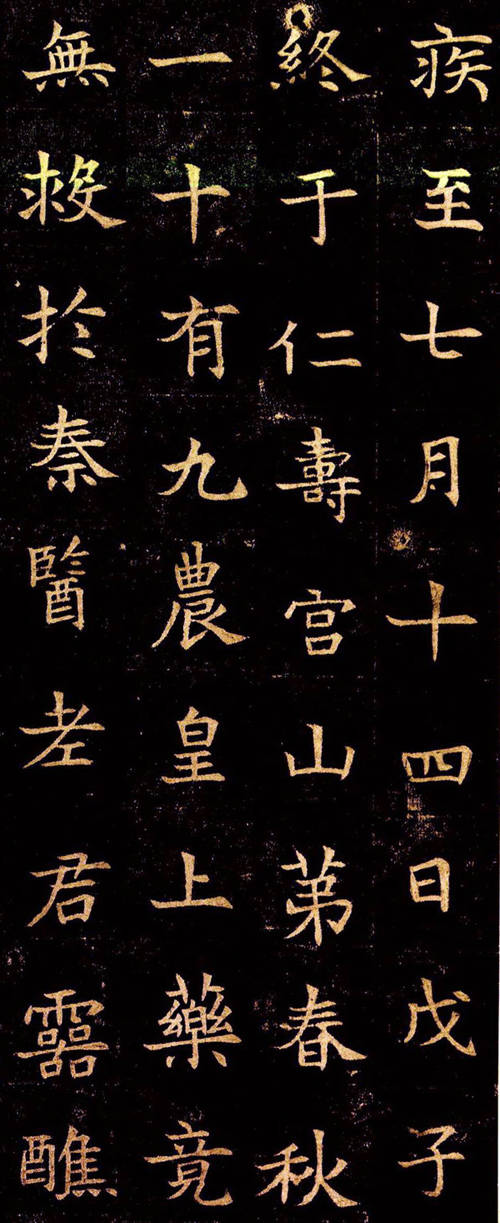 疾至七月十四日戊子
終于仁壽宮山苐春秋
一十有九農皇上藥竟
無救於秦醫老君靈醮